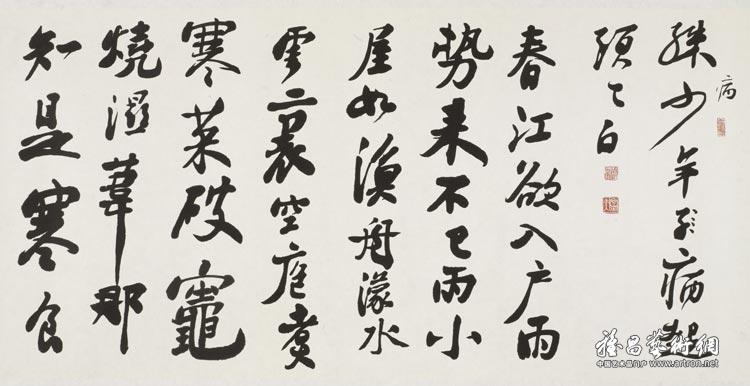 病
殊少年子病起
頭已白
春江欲入户雨
勢來不已雨小
屋如漁舟濛水
雲裏空庖煮
寒菜破竈
燒濕葦那
知是寒食
雅昌藝術網
中国艺术品门户 www.artron.net